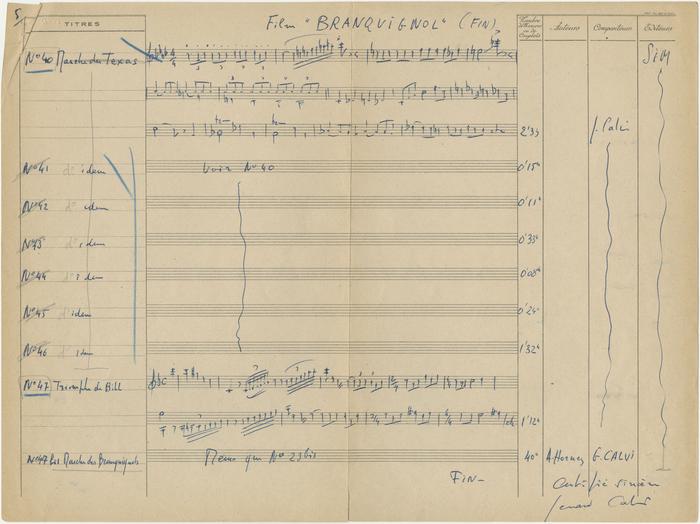 5
TITRES
Film "BRANQUIGNOL" (FIN)
Auteurs
Compositeurs
Editeurs
N° 40 Marche du Texas
SIM
J. Calvi
2'33
N° 41 d° idem
Voir N° 40
0'15"
N° 42 d° idem
0'11"
N° 43 d° idem
0'33"
N° 44 d° idem
0'08"
N° 45 d° idem
0'24"
N° 46 d° idem
1'32"
N° 47 Triomphe de Bill
1'12"
N° 47 bis Marche des Branquignols
Meme que N° 23 bis
40"
A. Hornez G. CALVI
FIN-
Certifié sincère
Gerard Calvi